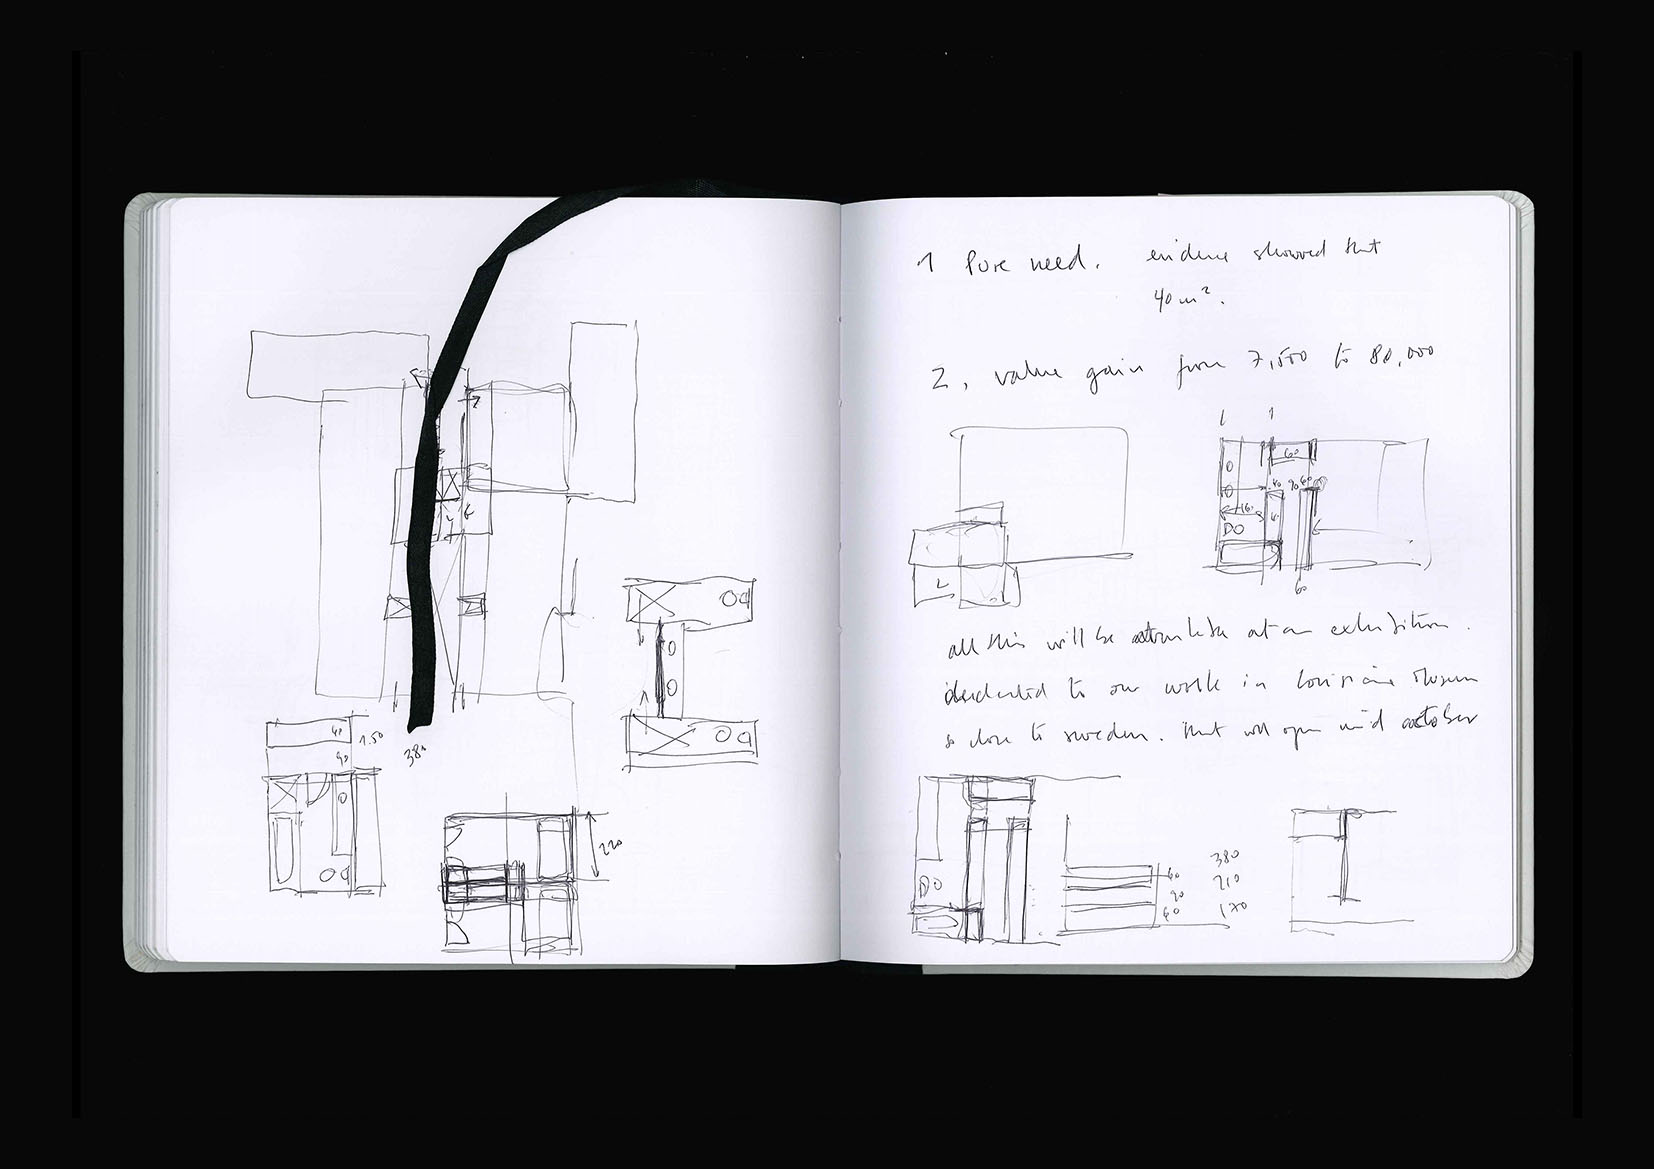 380
40
1.50
90
220
1 Pure need. evidence showed that
40 m².
2, value gain from 7,500 to 80,000
60
90
60
all this will be at an exhibition.
dedicated to our work in Louisiana Museum
so close to sweden. that will open mid october
60
90
60
380
210
170